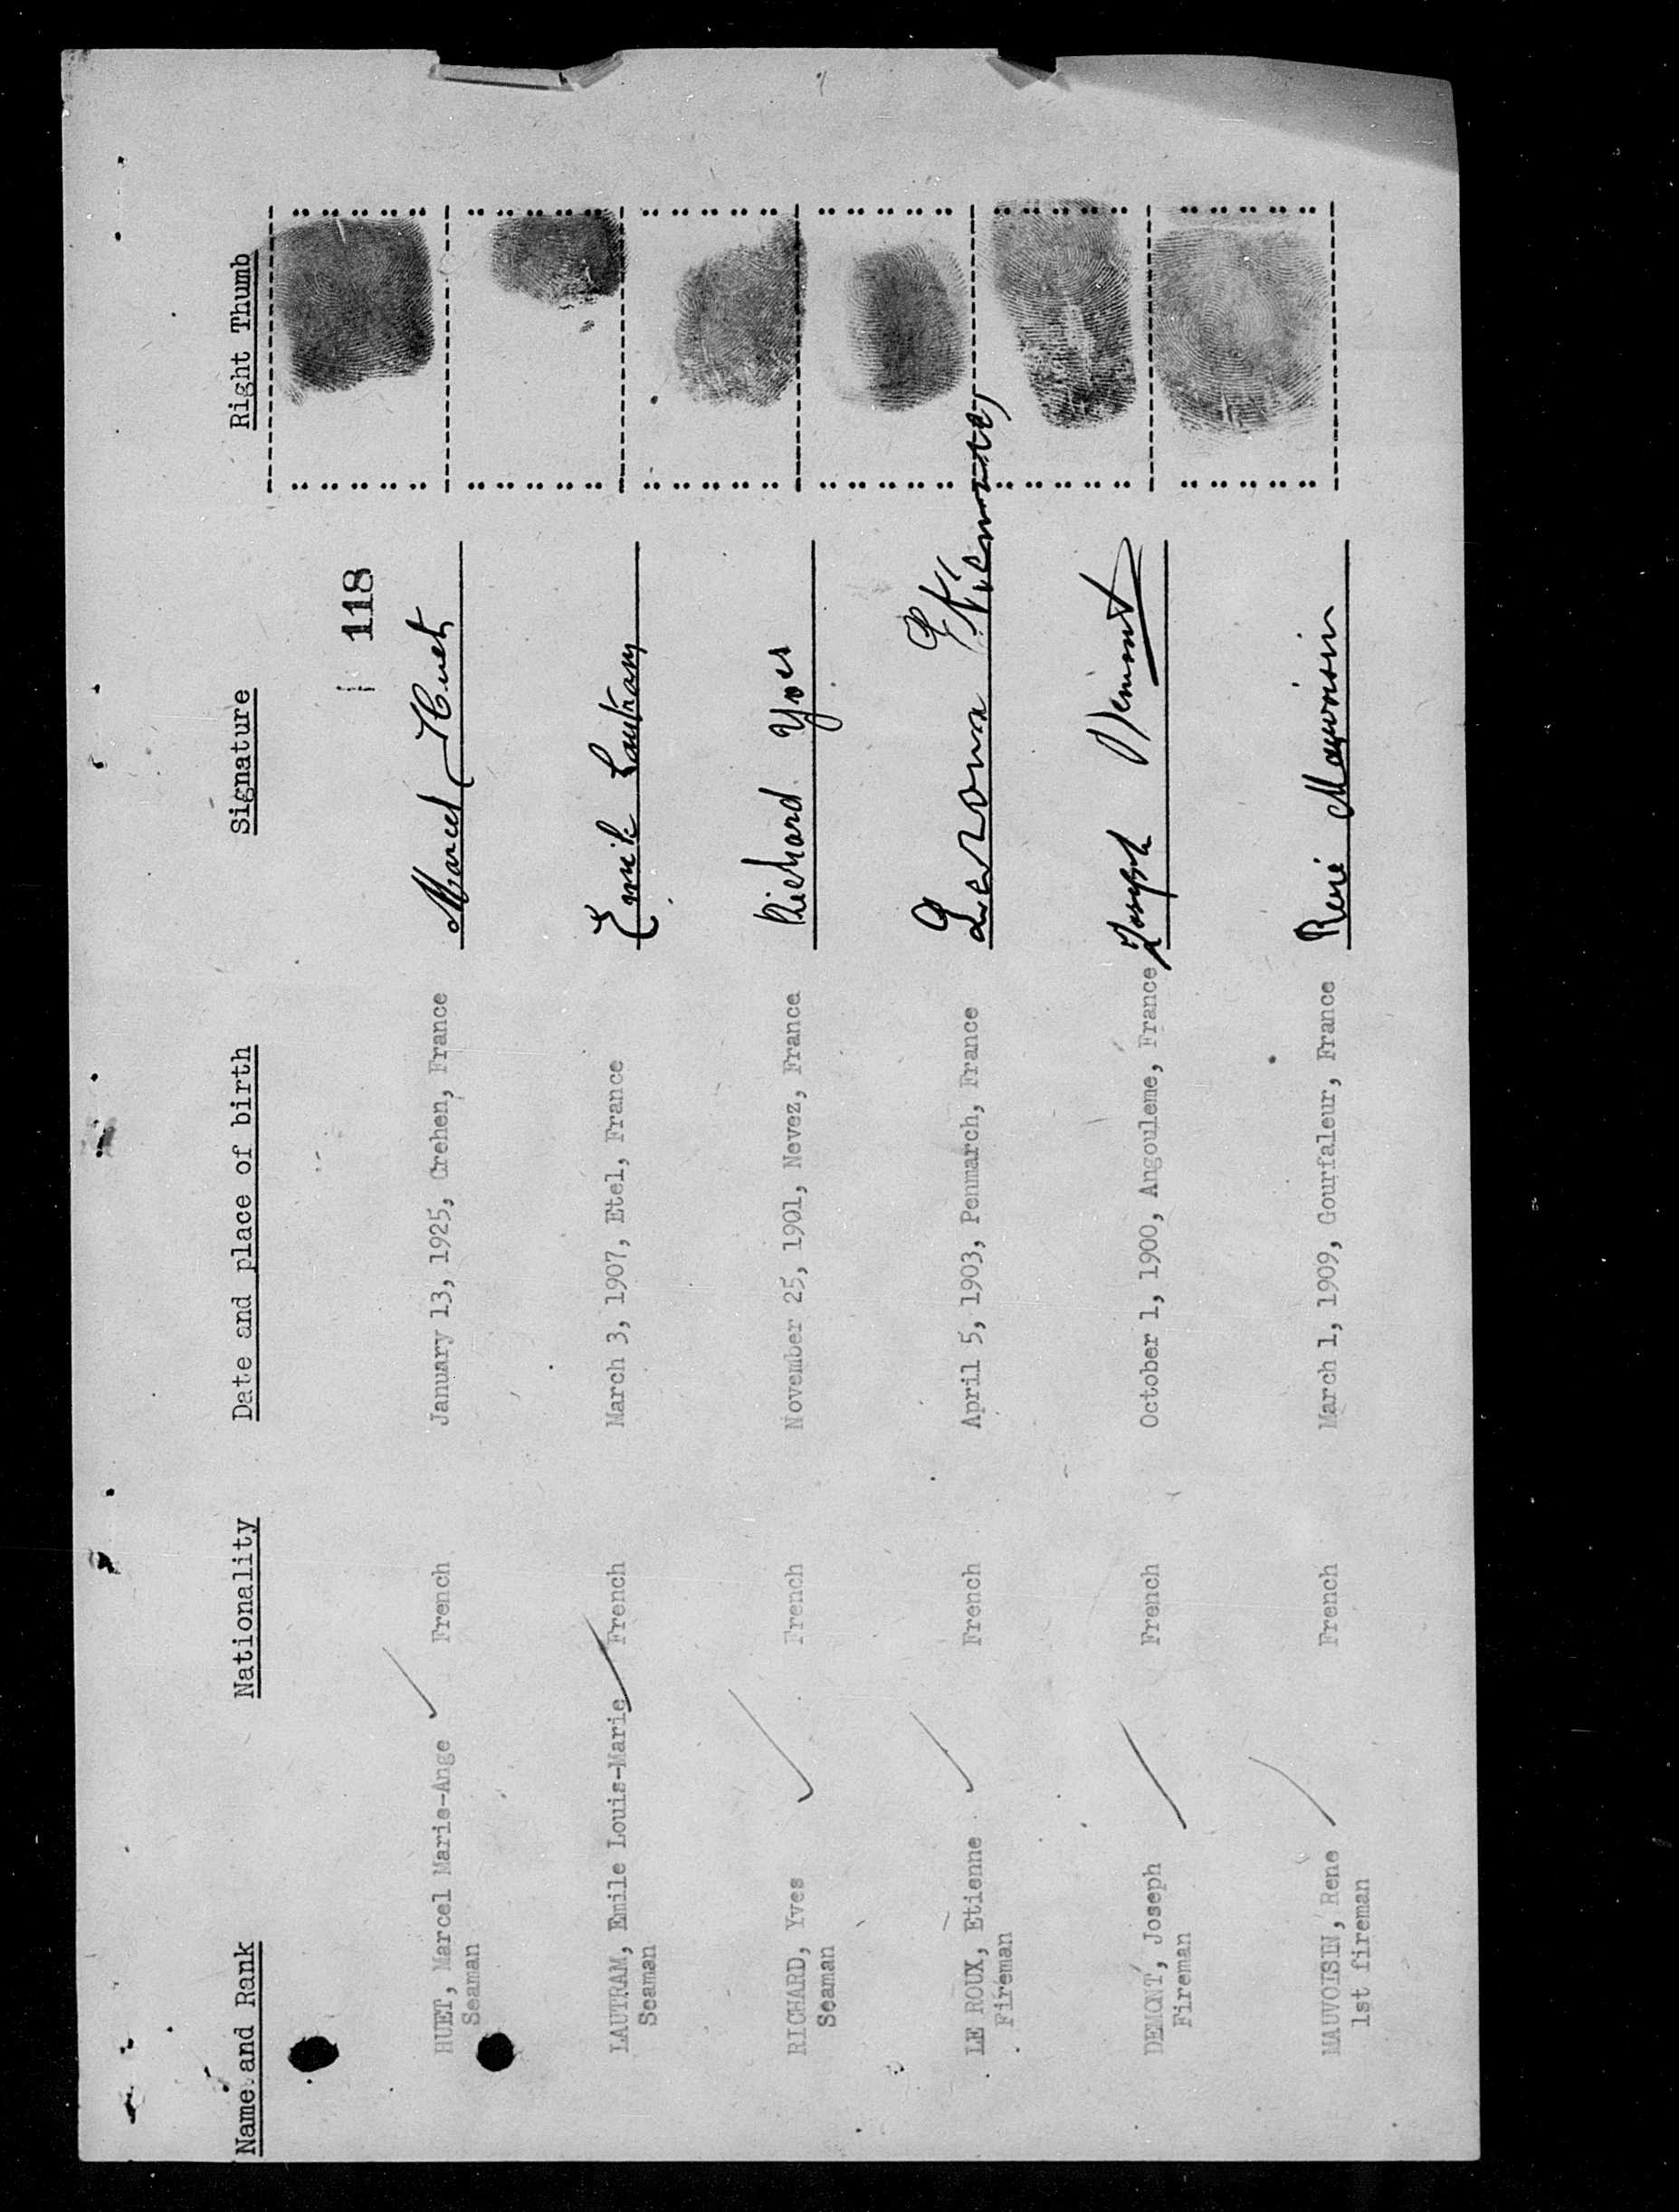 Name and Rank Nationality Date and place of birth Signature Right Thumb
118
HUET, Marcel Marie-Ange French January 13, 1925, Crehen, France Marcel Huet
Seaman
LAUTRAM, Emile Louis-Marie French March 3, 1907, Etel, France Emile Lautram
Seaman
RICHARD, Yves French November 25, 1901, Nevez, France Richard Yves
Seaman
LE ROUX, Etienne French April 5, 1903, Penmarch, France
Fireman
DEMONT, Joseph French October 1, 1900, Angouleme, France Joseph Demont
Fireman
MAUVOISIN, Rene French March 1, 1909, Gourfaleur, France René Mauvoisin
1st fireman